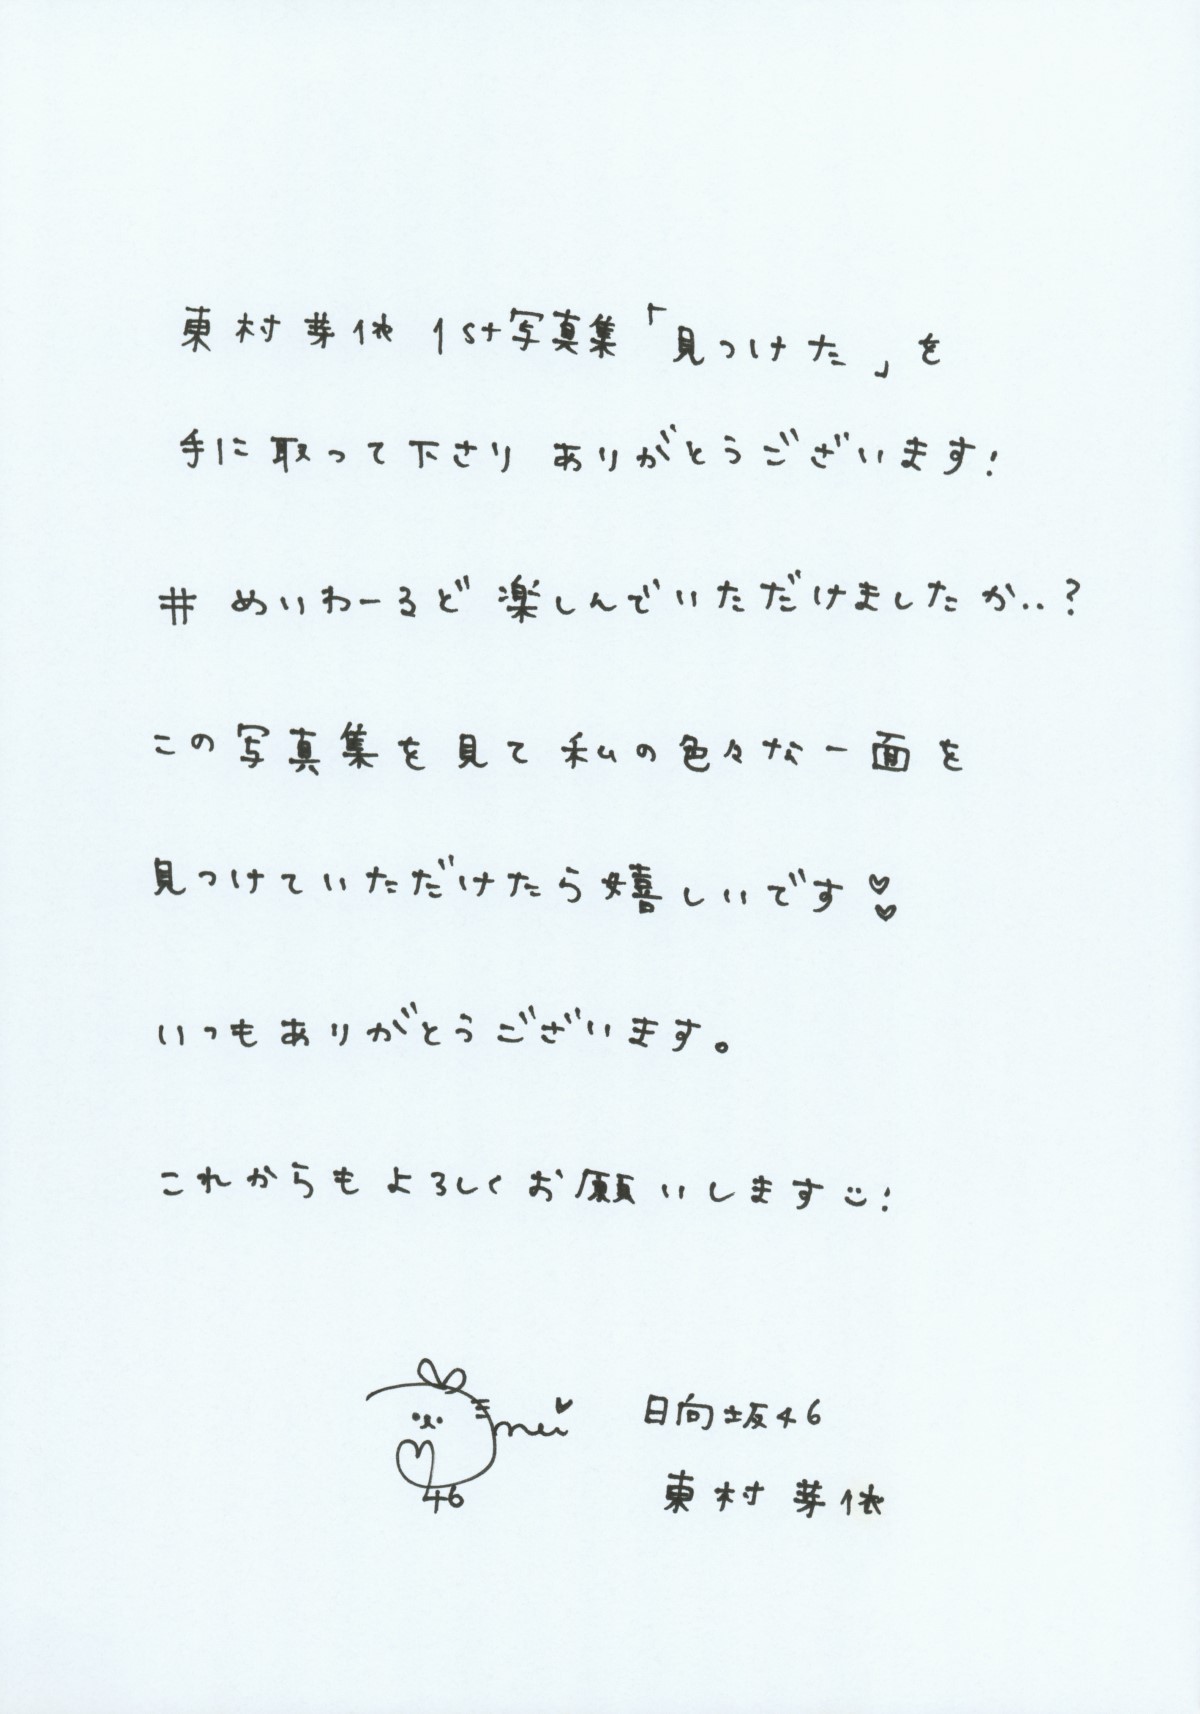 東村芽依 1st写真集「見つけた」を
手に取って下さり ありがとうございます!
# めいわーるど 楽しんでいただけましたか..?
この写真集を見て私の色々な一面を
見つけていただけたら嬉しいです♡♡
いつもありがとうございます。
これからもよろしくお願いします!
mei♡
46
日向坂46
東村 芽依